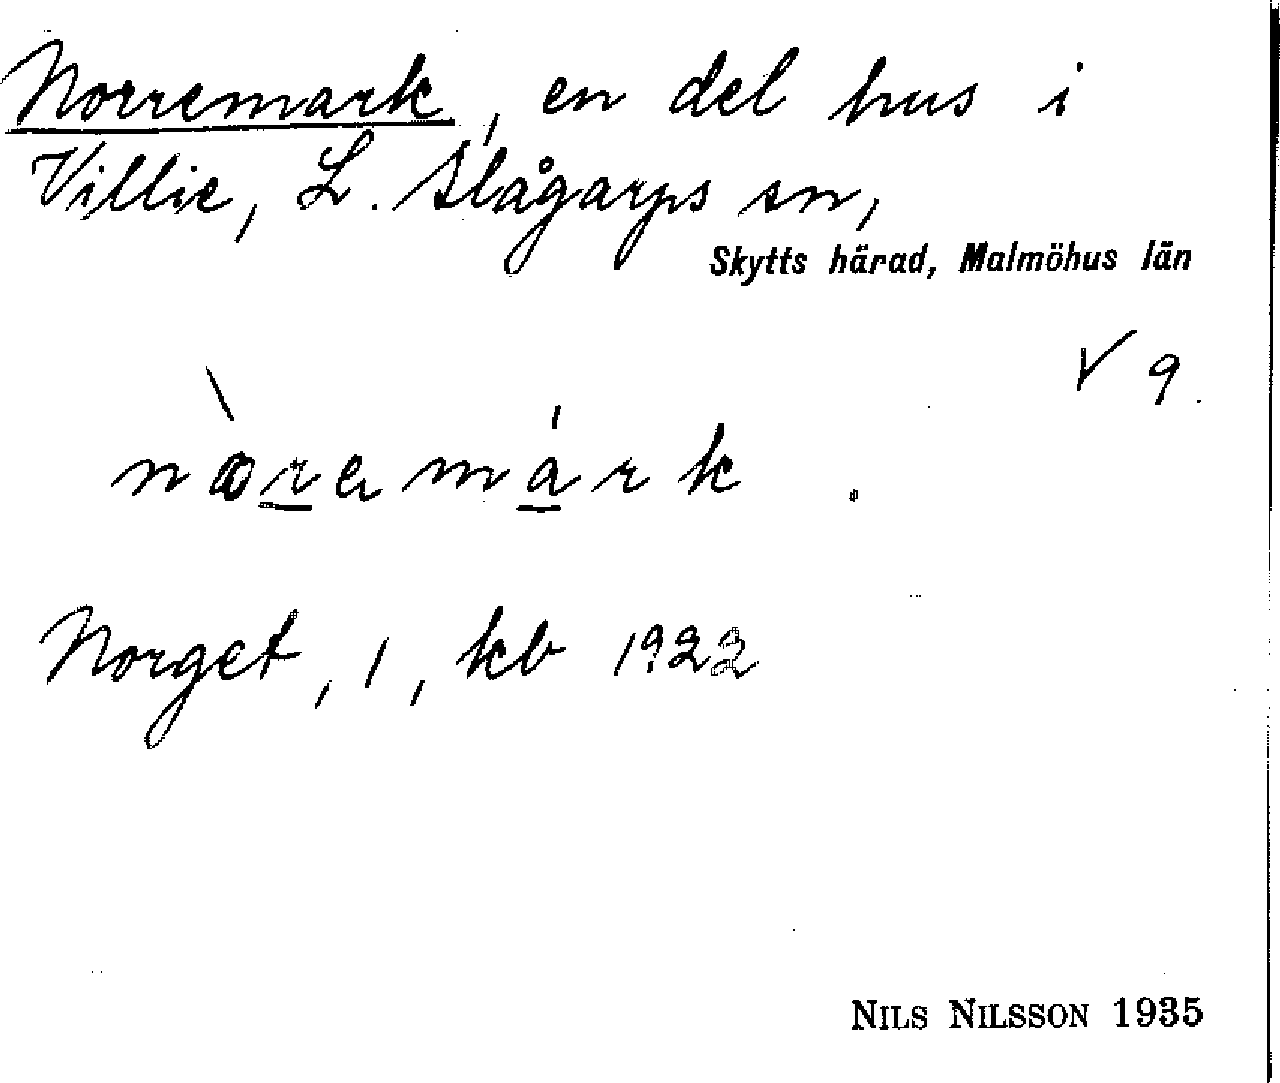 Norremark, en del hus i
Villie, L. Slågarps sn,
Skytts härad, Malmöhus län
V 9.
Norget, 1, kb 1922
NILS NILSSON 1935